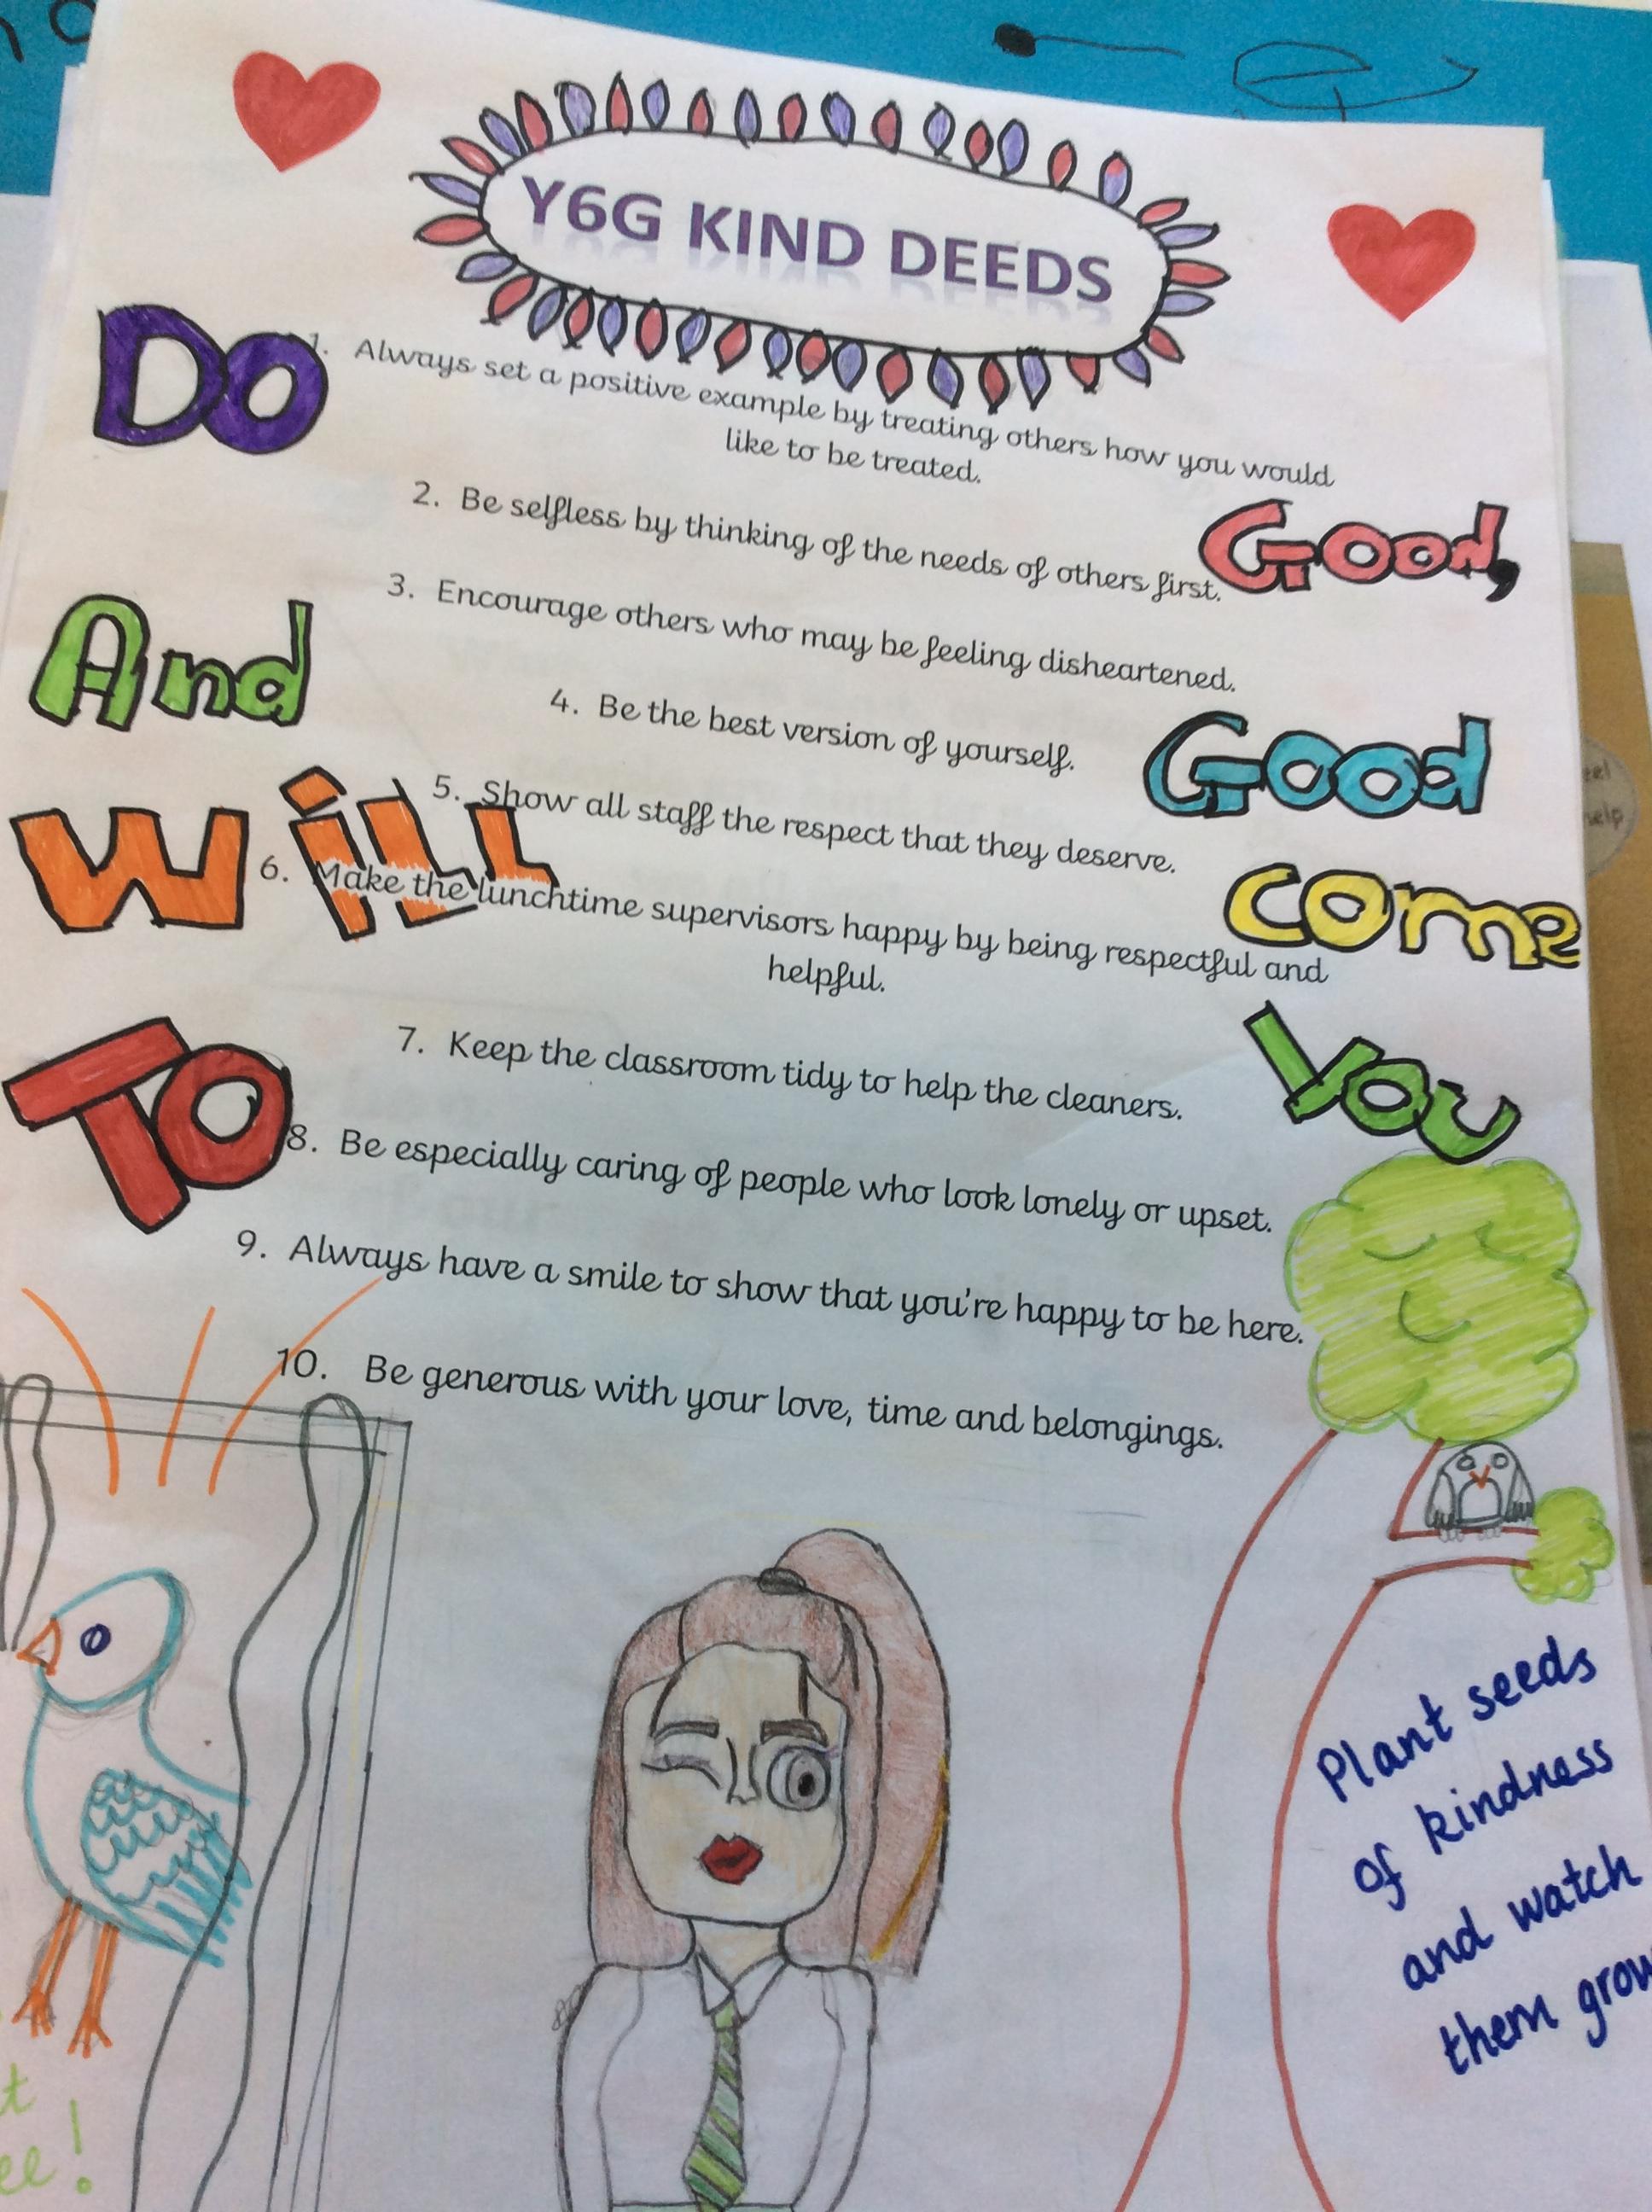 Y6G KIND DEEDS
DO
1. Always set a positive example by treating others how you would
like to be treated.
2. Be selfless by thinking of the needs of others first.
Good,
3. Encourage others who may be feeling disheartened.
And
4. Be the best version of yourself.
Good
5. Show all staff the respect that they deserve.
Will
6. Make the lunchtime supervisors happy by being respectful and
helpful.
come
7. Keep the classroom tidy to help the cleaners.
To
you
8. Be especially caring of people who look lonely or upset.
9. Always have a smile to show that you're happy to be here.
10. Be generous with your love, time and belongings.
Plant seeds
of kindness
and watch
them grow